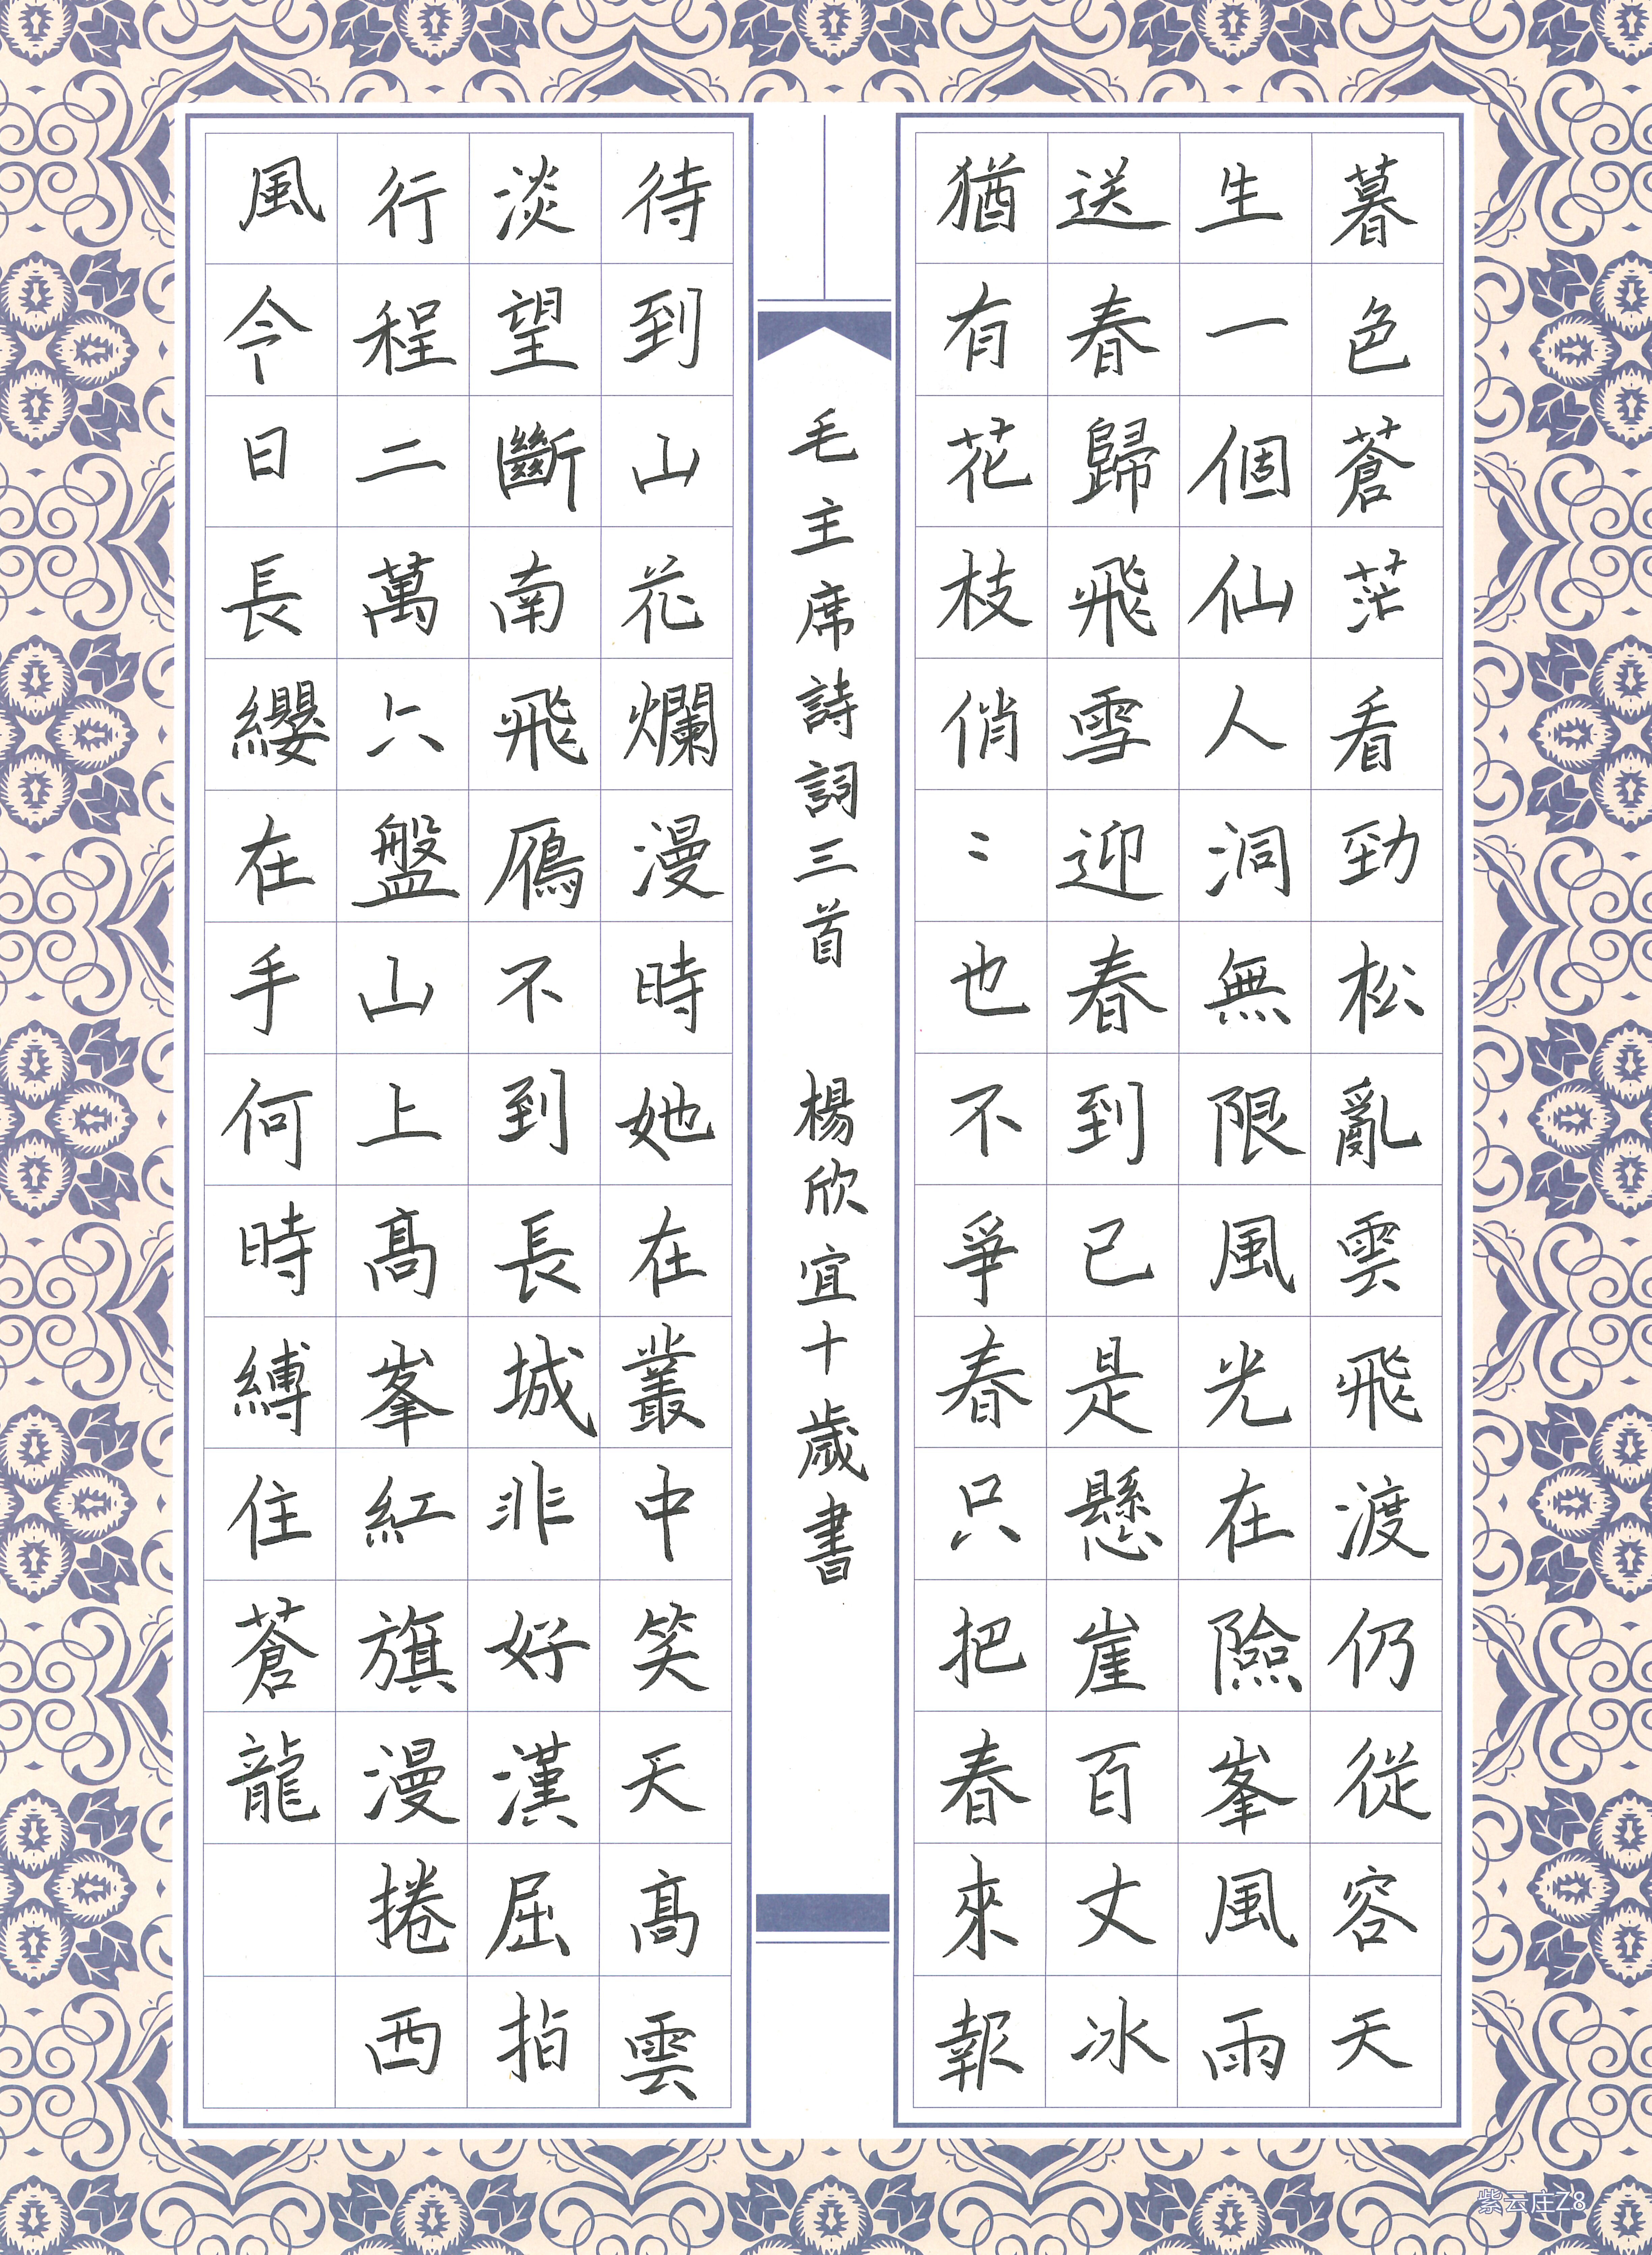 暮色蒼茫看勁松亂雲飛渡仍從容天
生一個仙人洞無限風光在險峯風雨
送春歸飛雪迎春到已是懸崖百丈冰
猶有花枝俏〻也不爭春只把春來報
毛主席詩詞三首 楊欣宜十歲書
待到山花爛漫時她在叢中笑天高雲
淡望斷南飛鴈不到長城非好漢屈指
行程二萬六盤山上高峯紅旗漫捲西
風今日長纓在手何時縛住蒼龍
紫云庄Z8